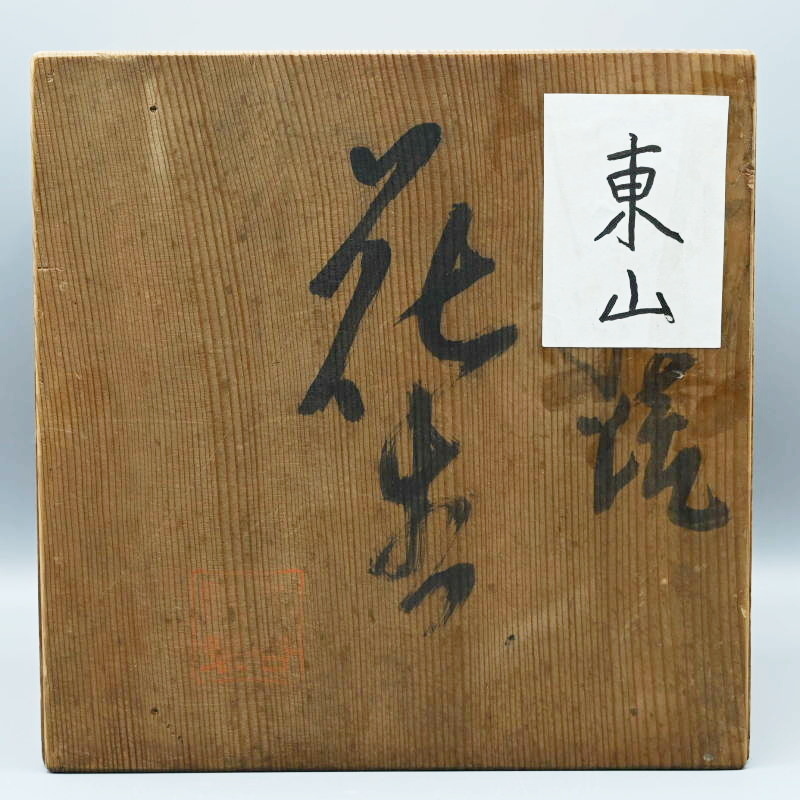 東山
焼
花生